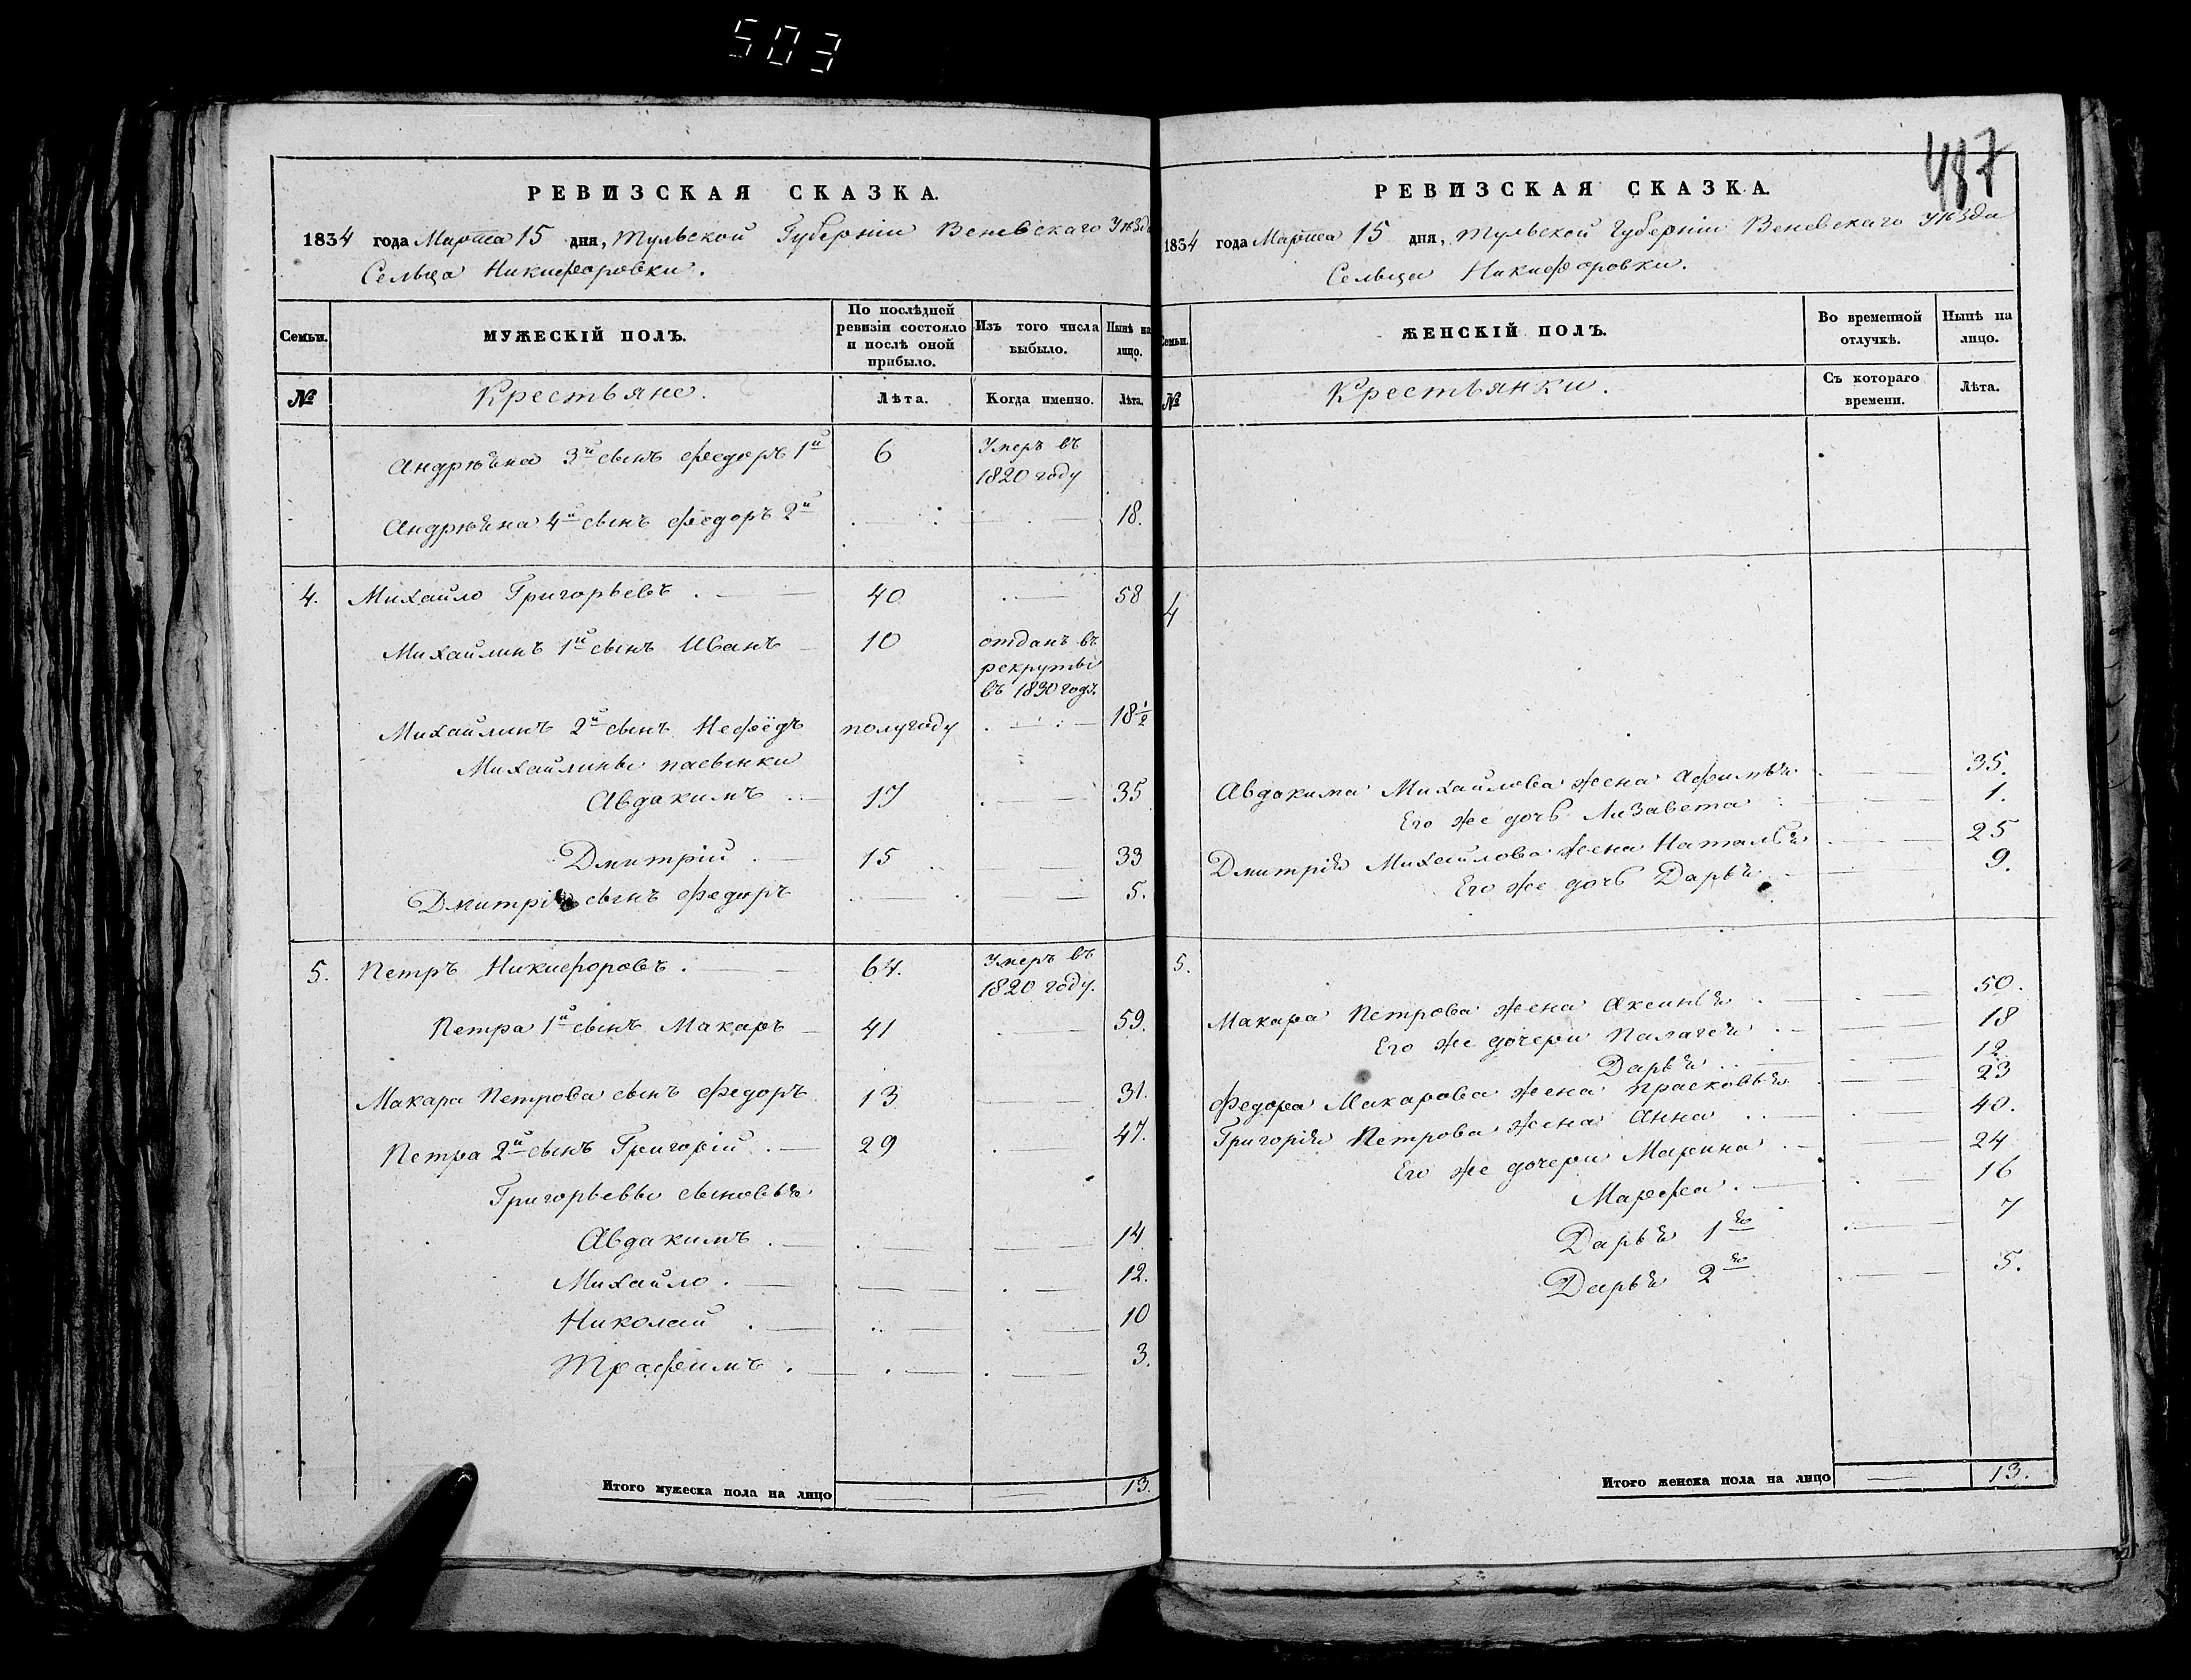 503
487
РЕВИЗСКАЯ СКАЗКА.
1834 года Марта 15 дня, Тульской Губерніи Веневскаго Уѣзда
Сельца Никифоровки.
Семьи.
МУЖЕСКІЙ ПОЛЪ.
По послѣдней ревизіи состояло и послѣ оной прибыло.
Изъ того числа выбыло.
Нынѣ на лицо.
№
Крестьяне.
Лѣта.
Когда именно.
Лѣта.
Андрѣяна 3й сынъ Федоръ 1й 6 Умеръ въ
1820 году
Андрѣяна 4й сынъ Федоръ 2й 18.
4. Михайло Григорьевъ. 40 58
Михайлинъ 1й сынъ Иванъ 10 отданъ въ
рекруты
въ 1830 годѣ.
Михайлинъ 2й сынъ Нефёдъ полугоду 18 1/2
Михайлины пасынки
Авдакимъ 17 35
Дмитрій 15 33
Дмитрія сынъ Федоръ 5.
5. Петръ Никифоровъ. 64. Умеръ въ
1820 году.
Петра 1й сынъ Макаръ 41 59.
Макара Петрова сынъ Федоръ 13 31.
Петра 2й сынъ Григорій 29 47.
Григорьевы сыновья
Авдакимъ 14
Михайло. 12.
Николай 10
Трафимъ. 3.
Итого мужеска пола на лицо 13.
РЕВИЗСКАЯ СКАЗКА.
1834 года Марта 15 дня, Тульской Губерніи Веневскаго Уѣзда
Сельца Никифоровки.
Семьи.
ЖЕНСКІЙ ПОЛЪ.
Во временной отлучкѣ.
Нынѣ на лицо.
№
Крестьянки.
Съ котораго времени.
Лѣта.
4
Авдакима Михайлова жена Афимья 35.
Его же дочь Лизавета 1.
Дмитрія Михайлова жена Наталья 25
Его же дочь Дарья 9.
5.
Макара Петрова жена Аксинья 50.
Его же дочери Палагея 18
Дарья 12.
Федора Макарова жена Прасковья 23
Григорія Петрова жена Анна 40.
Его же дочери Марина 24
Марфа. 16
Дарья 1я 7
Дарья 2я 5.
Итого женска пола на лицо 13.